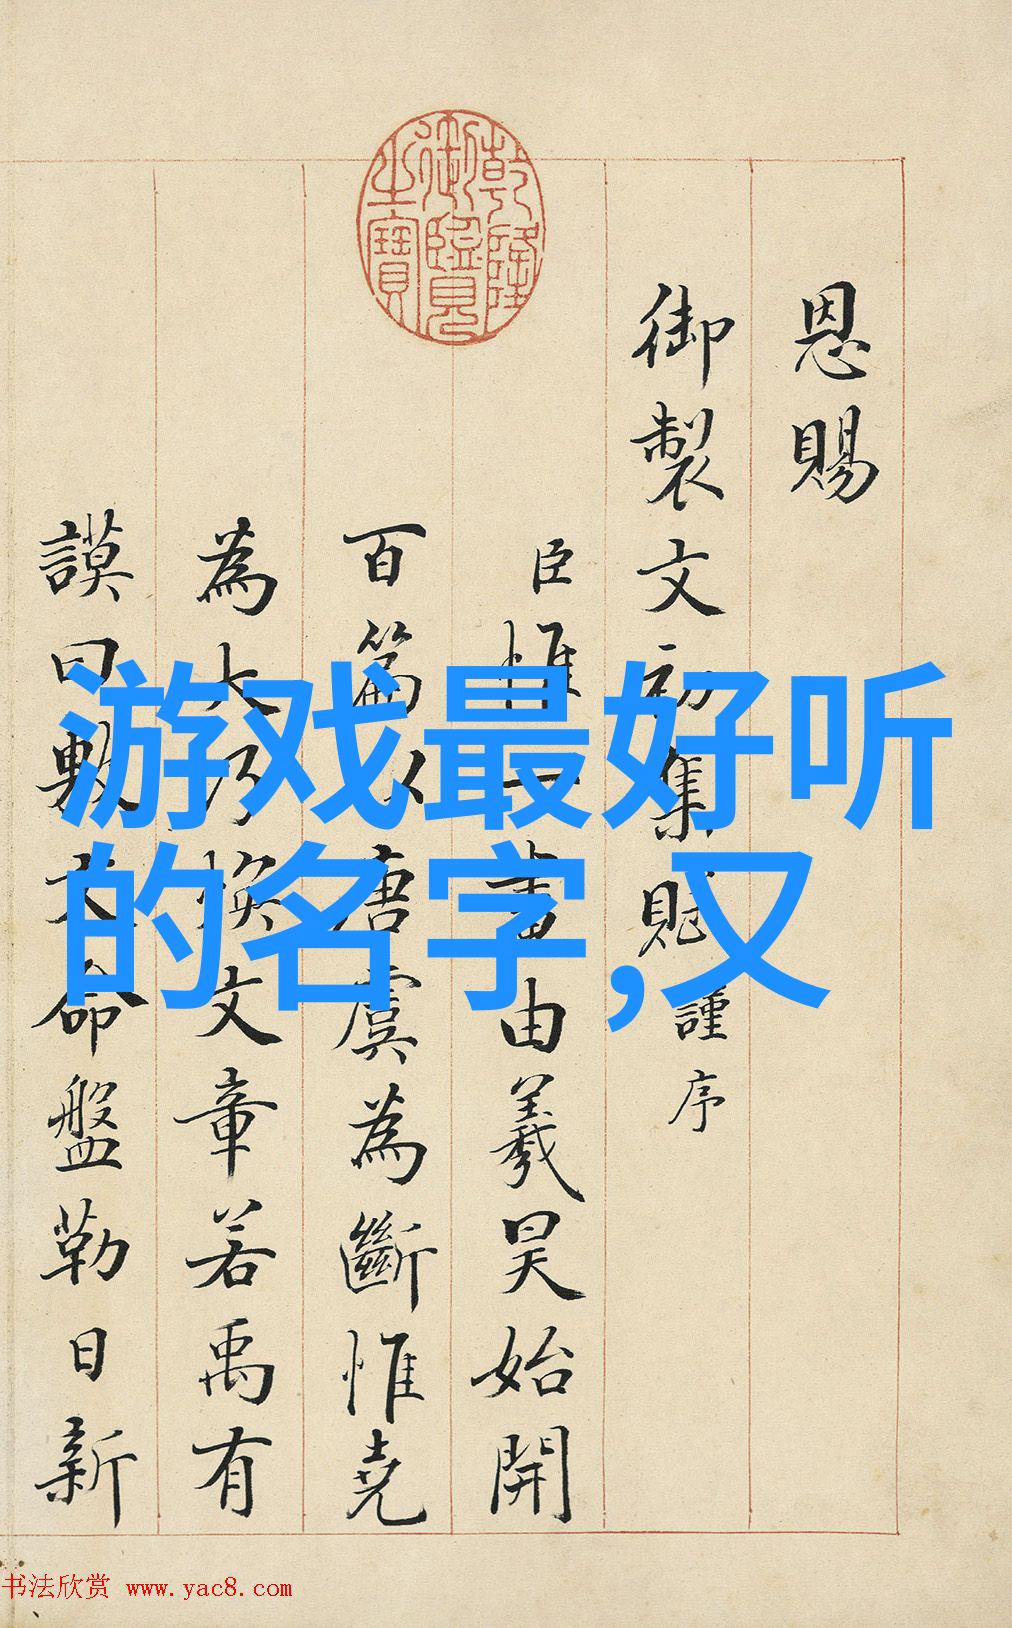 乾隆御覽之寶
恩賜
御製文初集賦謹序
臣惟一畫由羲昊始開
百篇以唐虞為斷惟堯
為大乃煥文章若禹有
謨曰敷文命盤勒日新
游戏最好听
的名字,又
书法欣赏 www.yac8.com